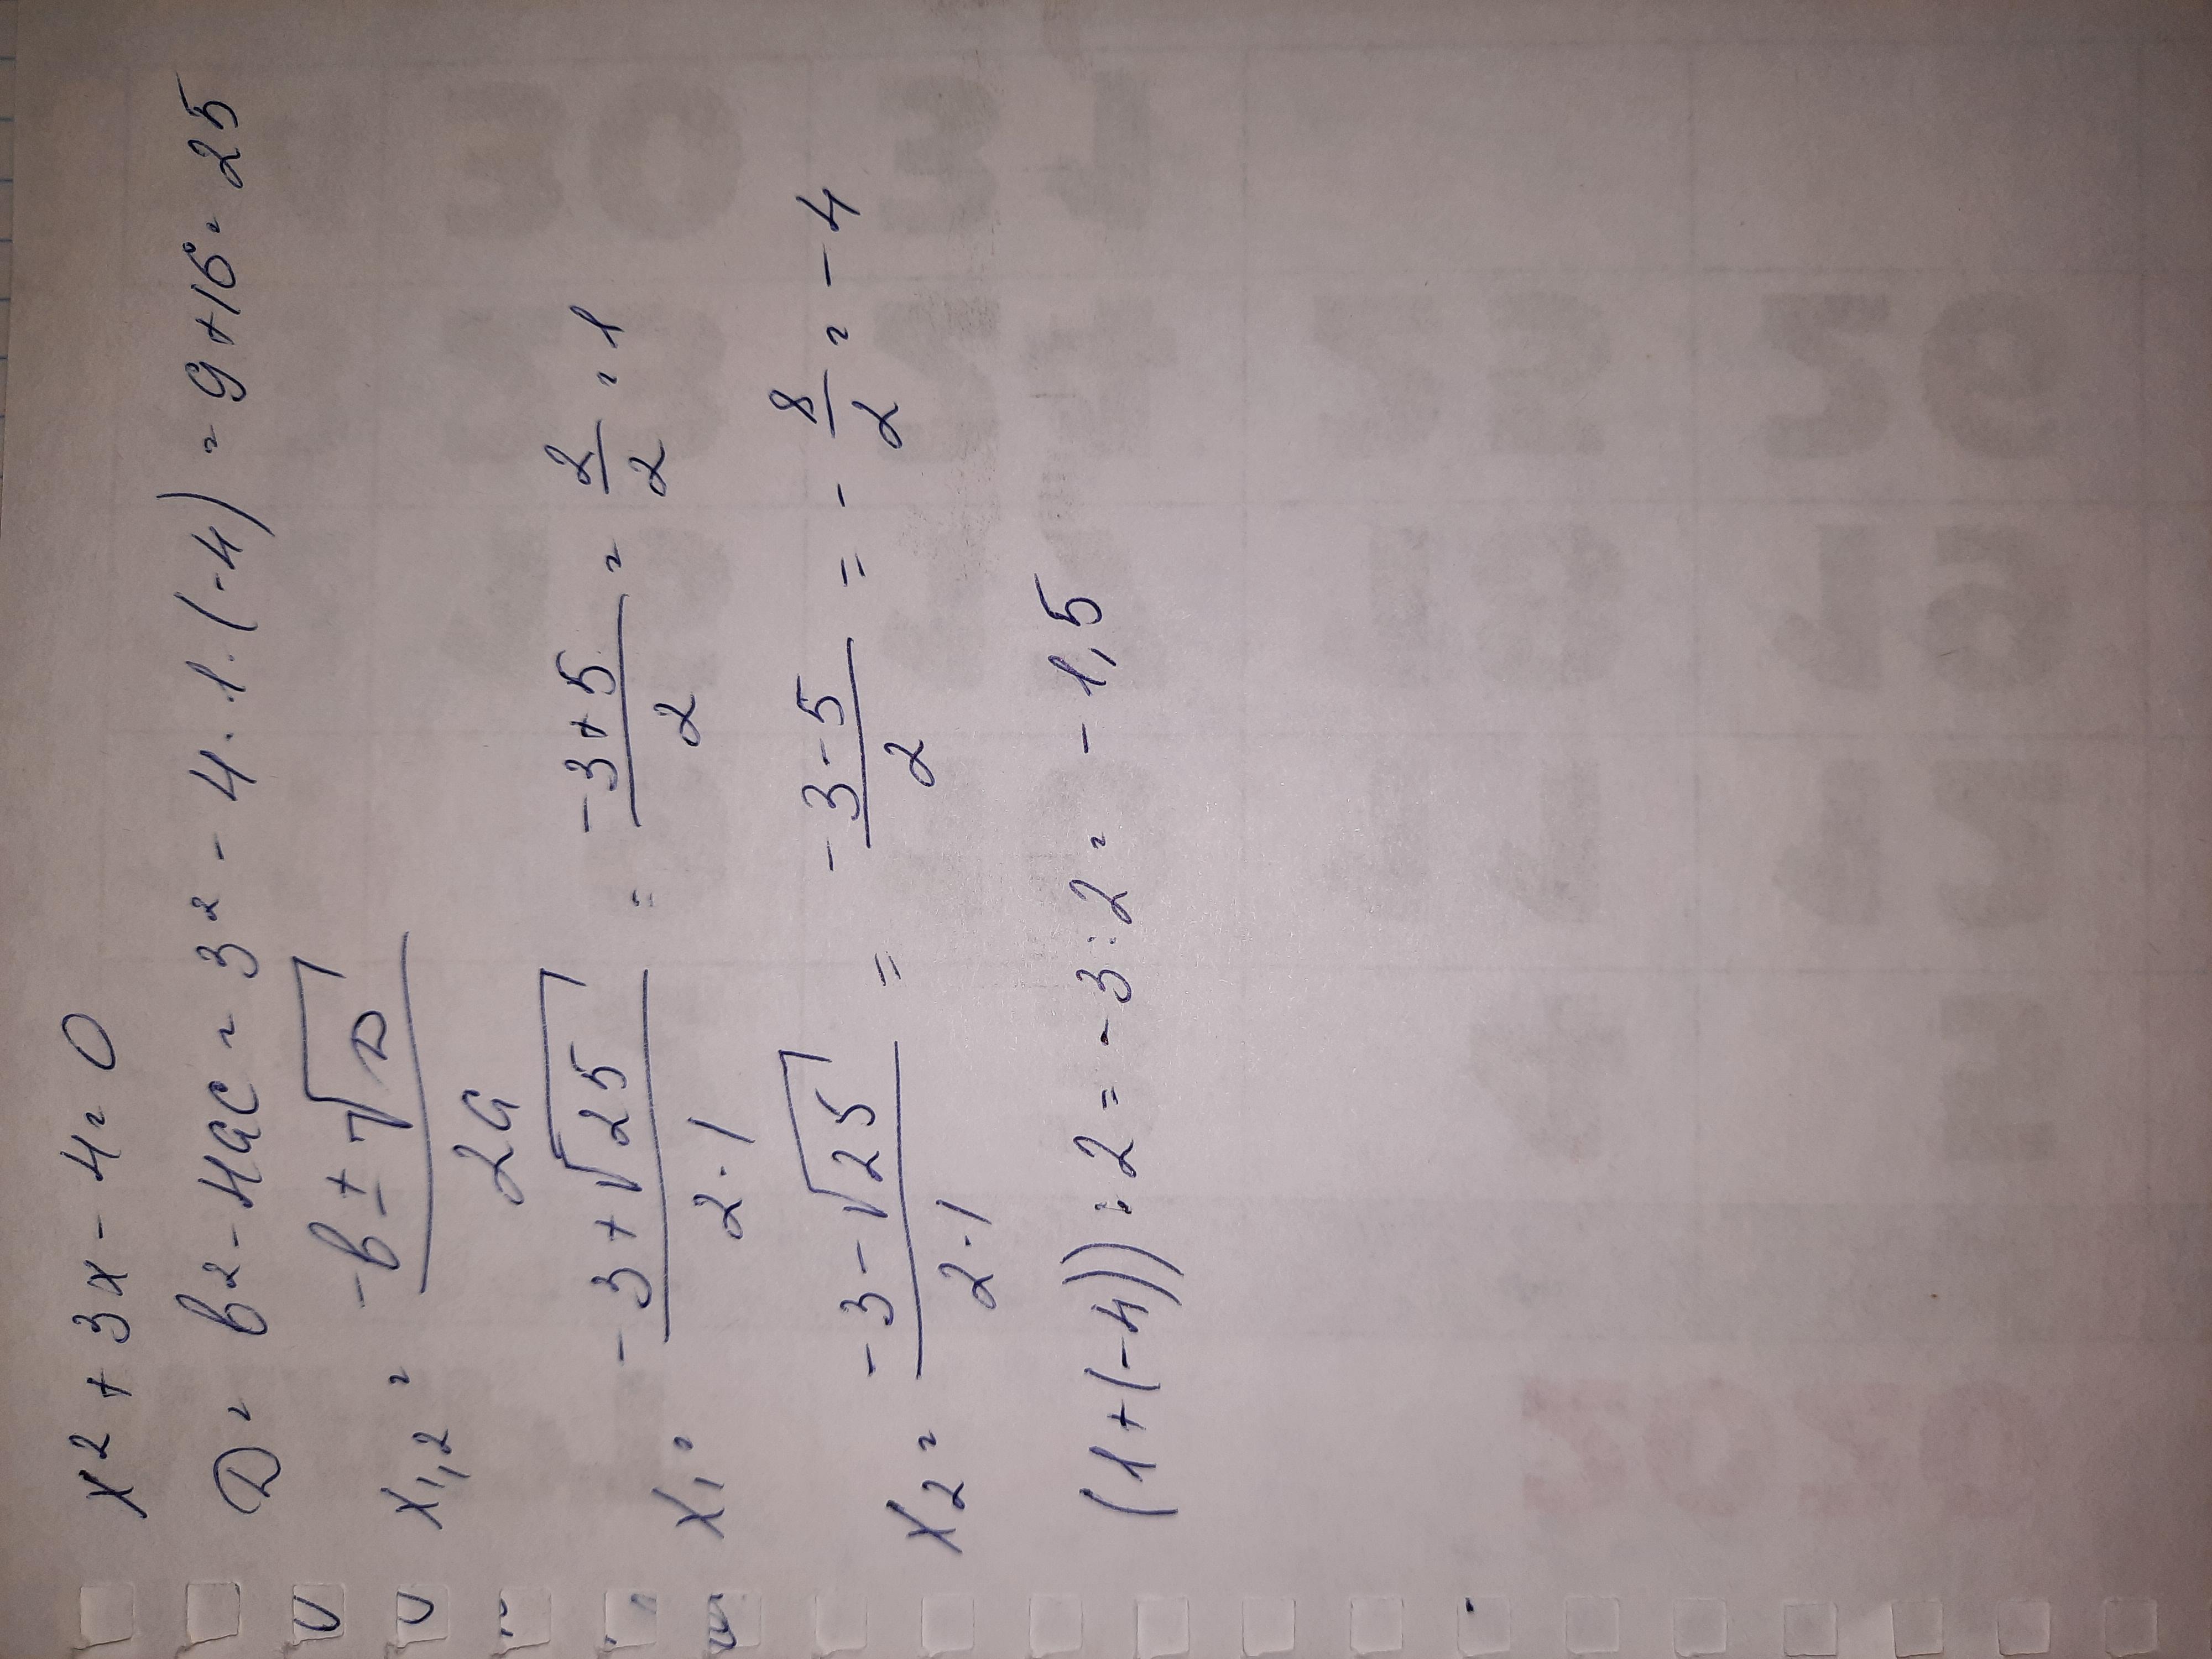 x² + 3x - 4 = 0
D = b² - 4ac = 3² - 4 · 1 · (-4) = 9 + 16 = 25
x₁,₂ = (-b ± √D) / 2a
x₁ = (-3 + √25) / (2 · 1) = (-3 + 5) / 2 = 2/2 = 1
x₂ = (-3 - √25) / (2 · 1) = (-3 - 5) / 2 = - 8/2 = -4
(1 + (-4)) : 2 = -3 : 2 = -1,5